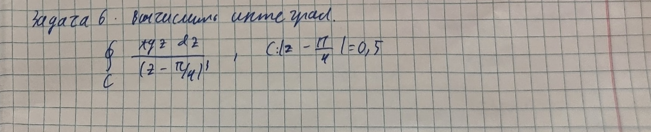 Задача 6. Вычислить интеграл.
∮_C \frac{xgz dz}{(z - π/4)^3}, C:|z - \frac{π}{4}|=0,5